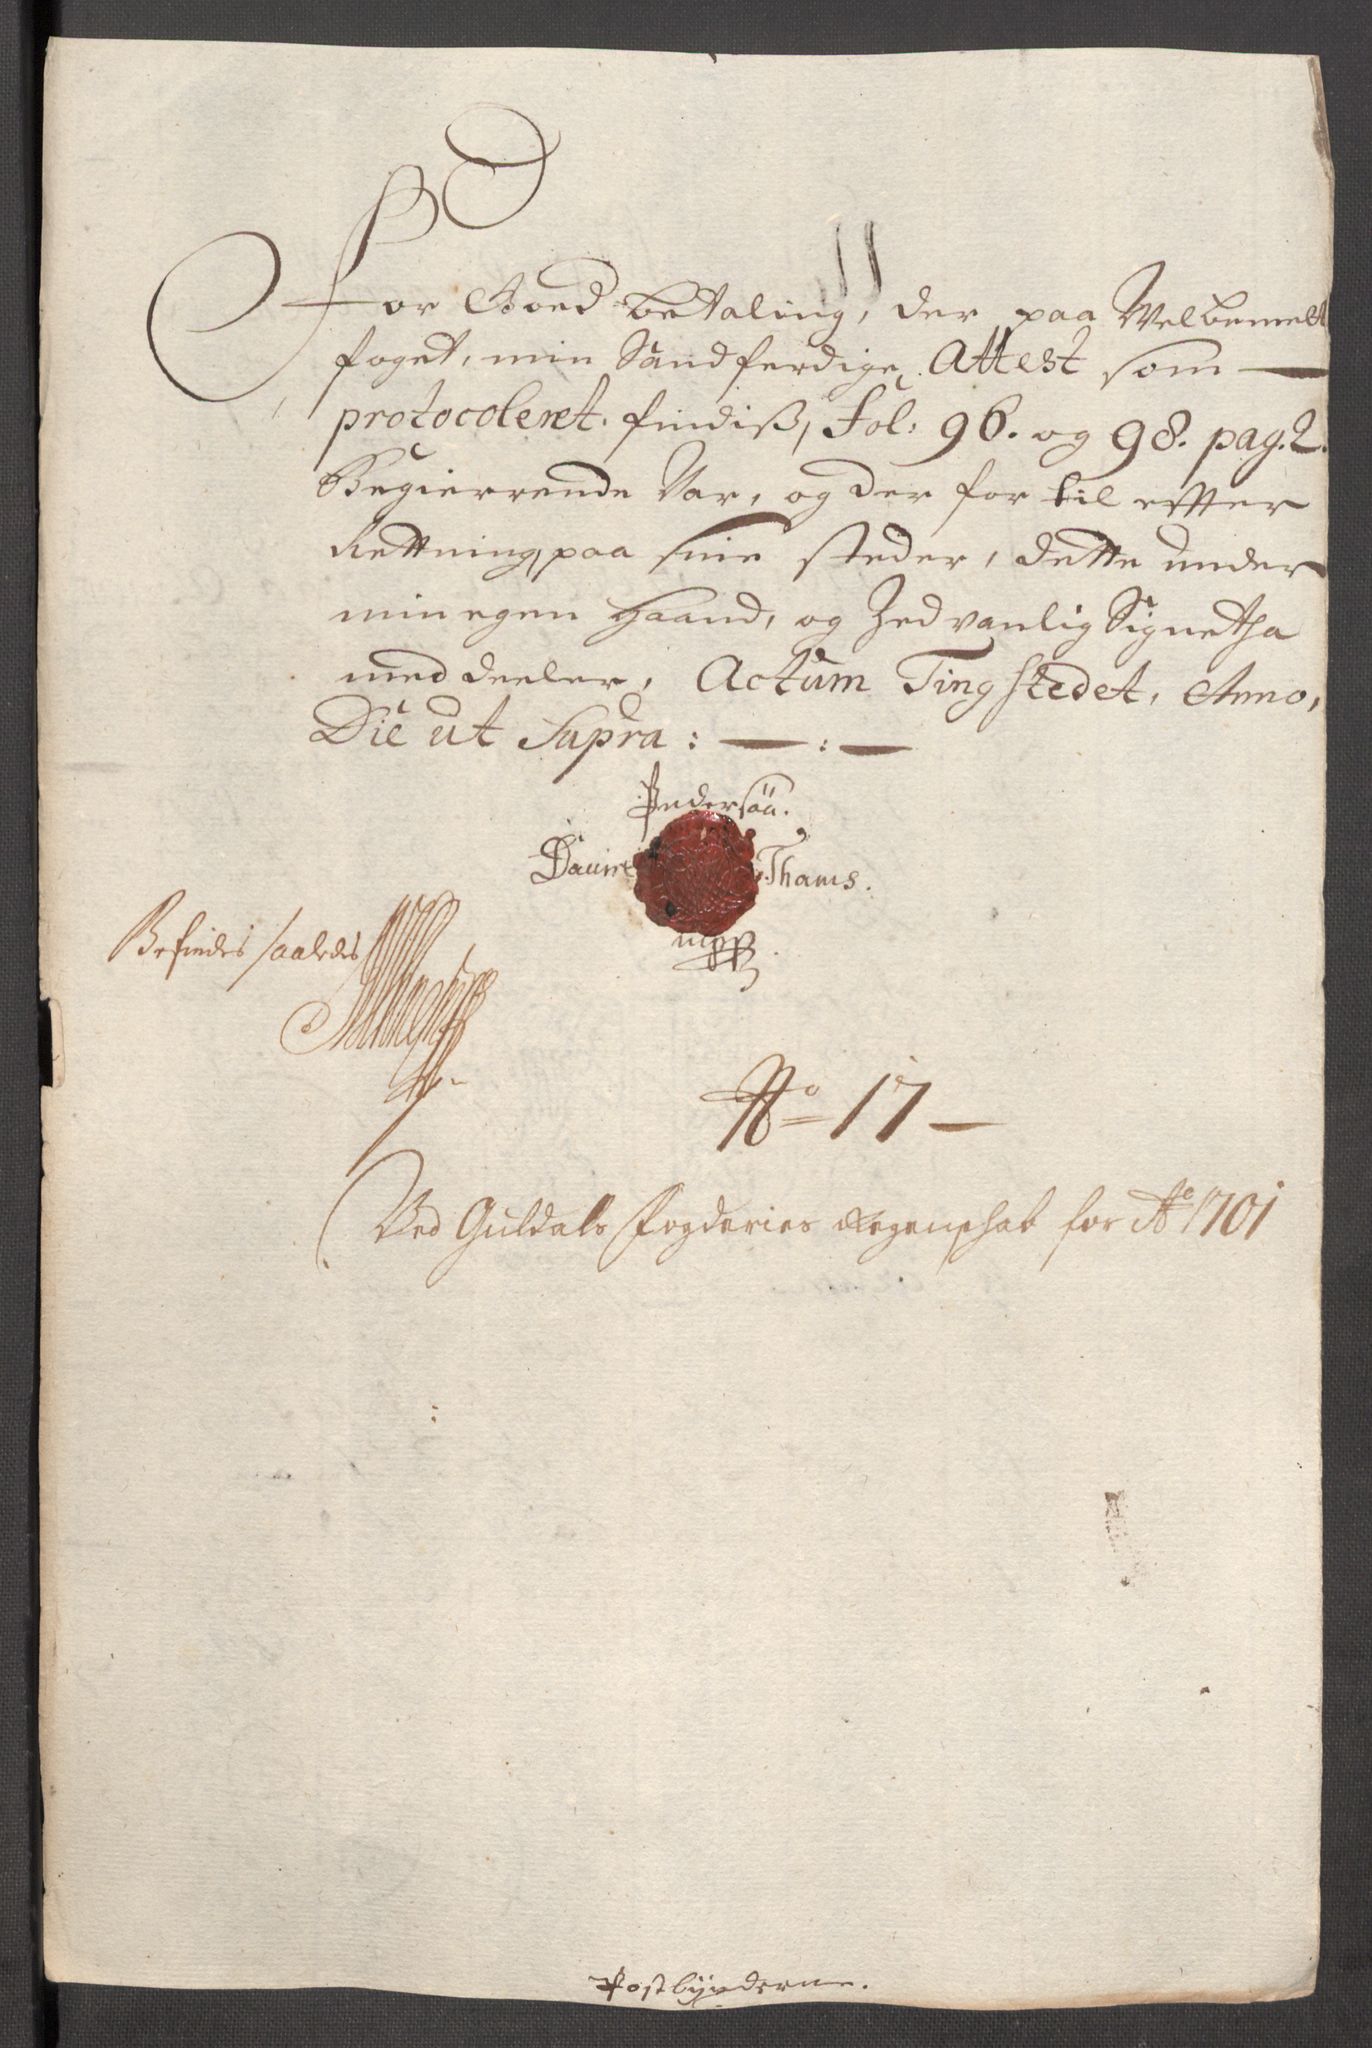 For Goed betaling, der paa Welbemelt
foget, min Sandferdige, Attest som
protocoleret. findiß, Fol: 96. og 98. pag. 2.
Begierrende Var, og der for til effter
Rettning, paa sine steder, dette under
min egen haand, og Zedvanlig Signetha
meddeeler, Actum Tingstedet, Anno,
Die ut Supra:
Pedersøn.
Thams.
mpp
Befindes saaledes
No 17
Ved Guldals Fogderies Regenschab for Ao 1701
Postbynderne.